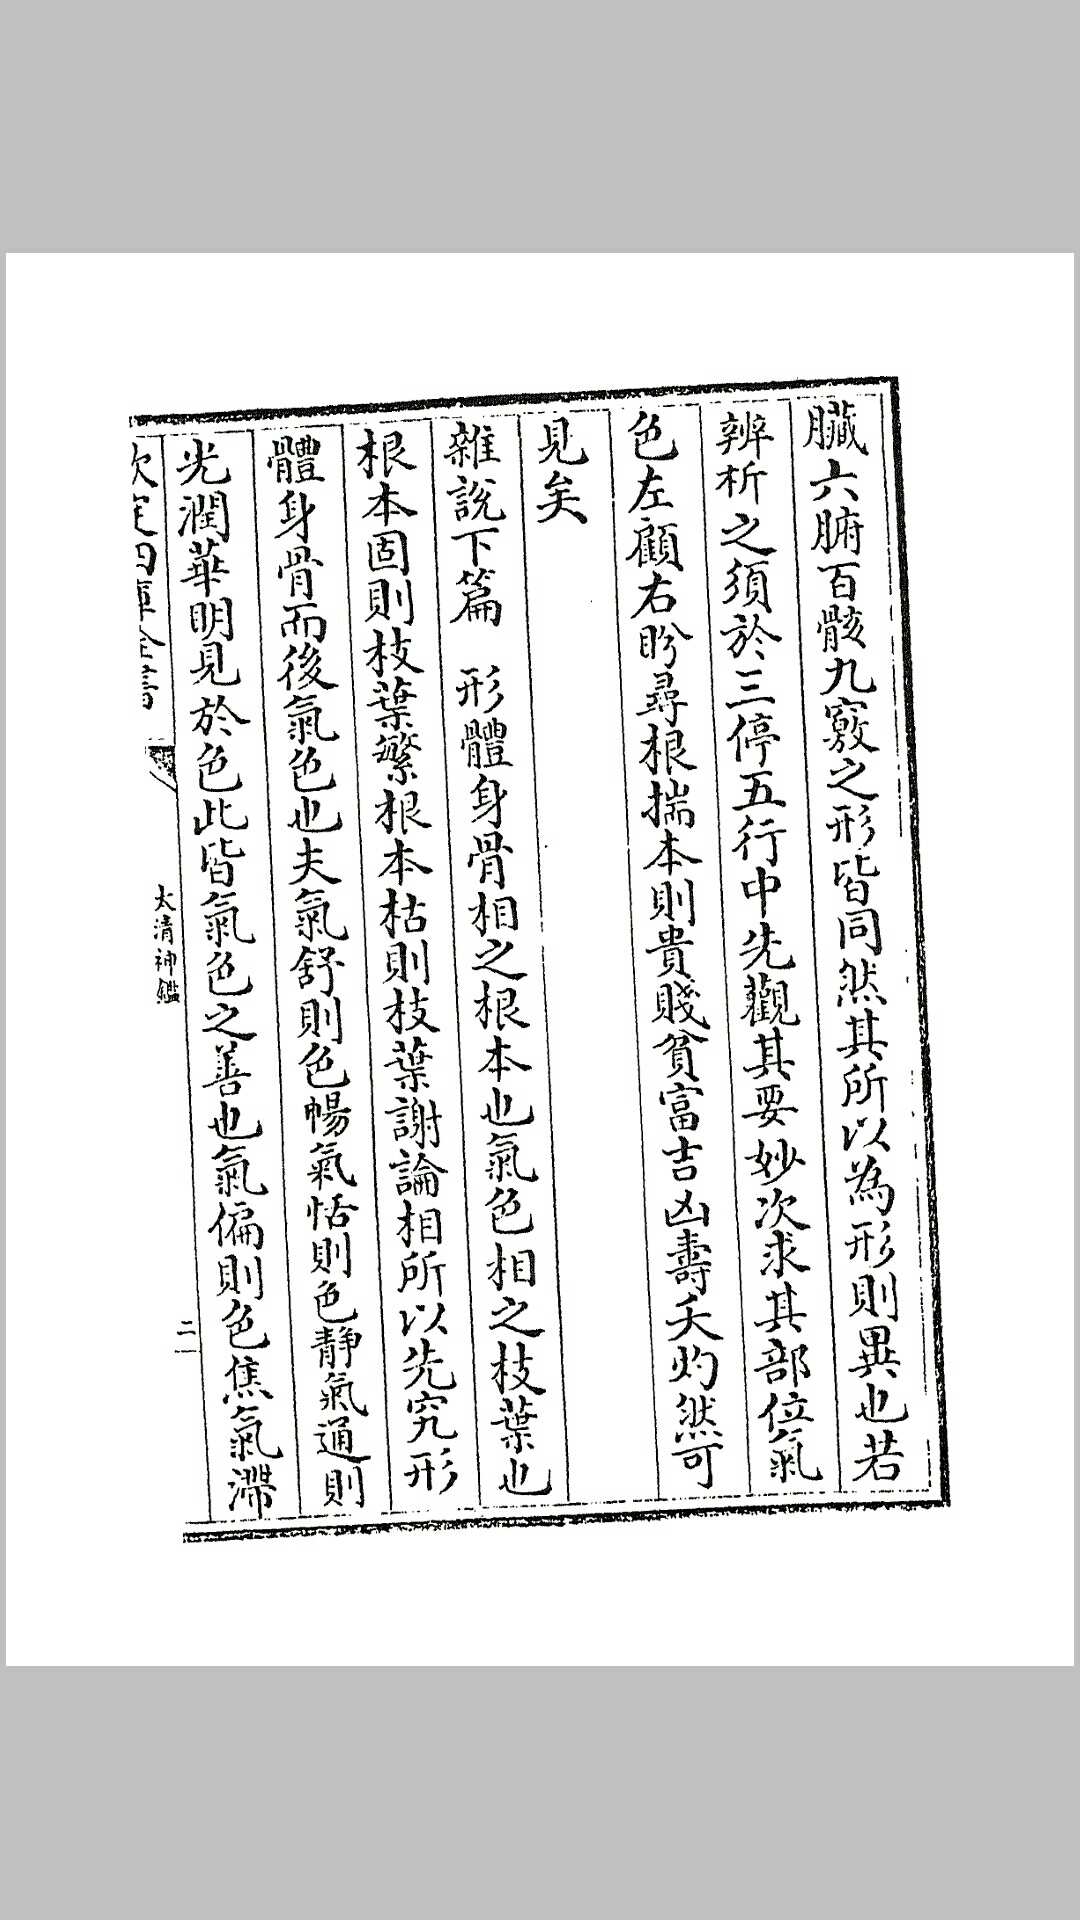 臟六腑百骸九竅之形皆同然其所以為形則異也若
辨析之須於三停五行中先觀其要妙次求其部位氣
色左顧右盼尋根揣本則貴賤貧富吉凶壽夭灼然可
見矣
雜說下篇　形體身骨相之根本也氣色相之枝葉也
根本固則枝葉繁根本枯則枝葉謝論相所以先究形
體身骨而後氣色也夫氣舒則色暢氣恬則色靜氣通則
光潤華明見於色此皆氣色之善也氣偏則色焦氣滯
欽定四庫全書
太清神鑑
二